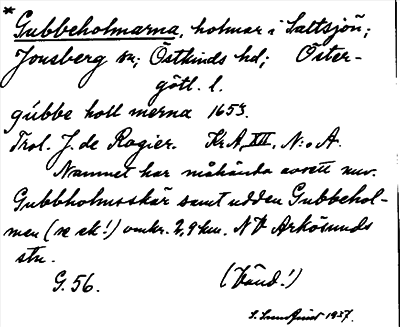 * Gubbeholmarna, holmar i Saltsjön;
Jonsberg sn; Östkinds hd; Öster-
götl. l.
gúbbe holl merna 1653.
Trol. J. de Rogier. Kr.A, XII, N:o A.
Namnet har måhända avsett nuv.
Gubbholmsskär samt udden Gubbehol-
men (se ek!) omkr. 2,9 km. NV Arkösunds
stn.
G. 56. (Vänd!)
S. 1937.